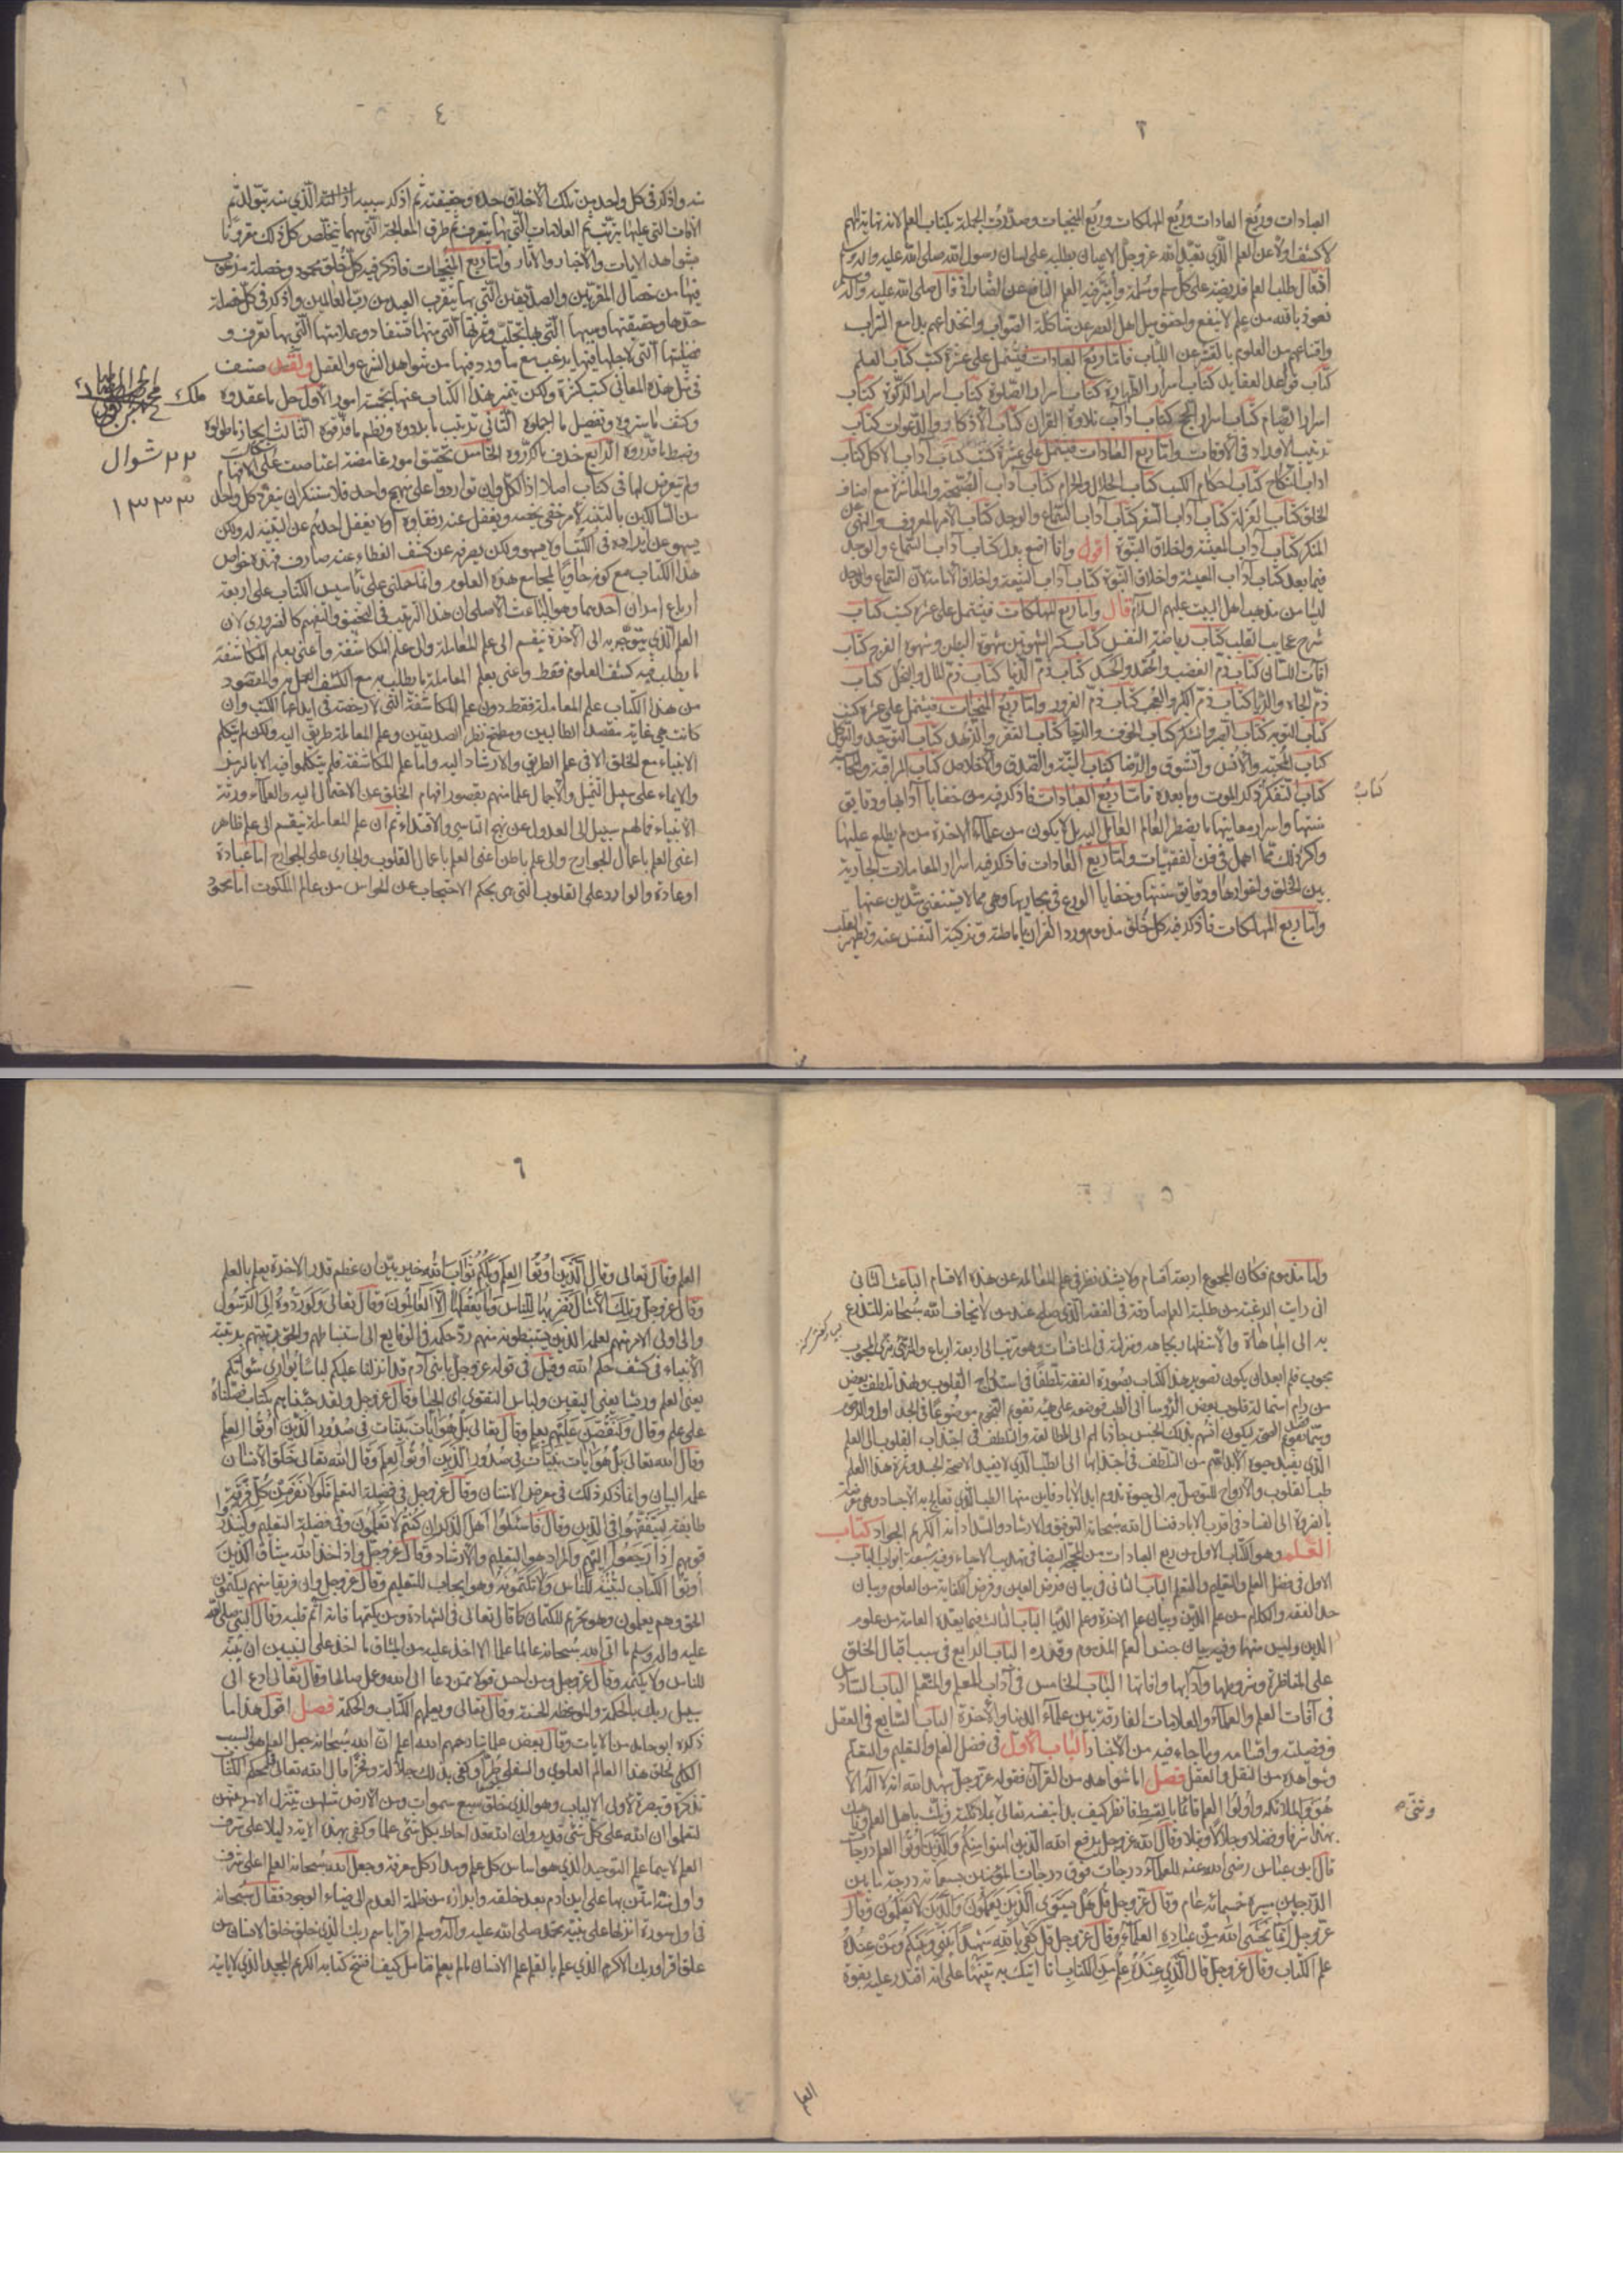 ٣
العبادات وربع العادات وربع المهلكات وربع المنجيات وصدرت الجملة بكتاب العلم لانه نهاية المهم
لاكشف اولا عن العلم الذي تعبد الله عز وجل الاعيان بطلبه على لسان رسول الله صلى الله عليه واله وسلم
اذ قال طلب العلم فريضة على كل مسلم ومسلمة وأميز فيه العلم النافع عن الضار اذ قال صلى الله عليه واله وسلم
نعوذ بالله من علم لا ينفع واحقق ميل اهل العصر عن شاكلة الصواب وانخداعهم بلامع السراب
واقتناعهم من العلوم بالقشر عن اللباب فاما ربع العبادات فيشتمل على عشرة كتب كتاب العلم
كتاب قواعد العقايد كتاب اسرار الطهارة كتاب اسرار الصلوة كتاب اسرار الزكوة كتاب
اسرار الصيام كتاب اسرار الحج كتاب آداب تلاوة القران كتاب الاذكار والدعوات كتاب
ترتيب الاوراد في الاوقات واما ربع العادات فيشتمل على عشرة كتب كتاب آداب الاكل كتاب
اداب النكاح كتاب احكام الكسب كتاب الحلال والحرام كتاب آداب الصحبة والمعاشرة مع اصناف
الخلق كتاب العزلة كتاب آداب السفر كتاب آداب السماع والوجد كتاب الامر بالمعروف والنهي عن
المنكر كتاب آداب المعيشة واخلاق النبوة اقول وانا اضع بدل كتاب آداب السماع والوجد
فيما بعد كتاب آداب المعيشة واخلاق النبوة كتاب آداب الشيعة واخلاق الامامة لان السماع والوجد
ليسا من مذهب اهل البيت عليهم السلام قال واما ربع المهلكات فيشتمل على عشرة كتب كتاب
شرح عجايب القلب كتاب رياضة النفس كتاب كسر الشهوتين شهوة البطن وشهوة الفرج كتاب
آفات اللسان كتاب ذم الغضب والحقد والحسد كتاب ذم الدنيا كتاب ذم المال والبخل كتاب
ذم الجاه والريا كتاب ذم الكبر والعجب كتاب ذم الغرور واما ربع المنجيات فيشتمل على عشرة كتب
كتاب التوبة كتاب الصبر والشكر كتاب الخوف والرجا كتاب الفقر والزهد كتاب التوحيد والتوكل
كتاب المحبة والانس والشوق والرضا كتاب النية والصدق والاخلاص كتاب المراقبة والمحاسبة
كتاب التفكر كتاب ذكر الموت وما بعده فاما ربع العبادات فاذكر فيه من خفايا آدابها ودقايق
سننها واسرار معانيها ما يضطر العالم العامل اليه بل لا يكون من علماء الاخرة من لم يطلع عليها
واكثر ذلك مما اهمل في فن الفقهيات واما ربع العادات فاذكر فيه اسرار المعاملات الجارية
بين الخلق واغوارها ودقايق سننها وخفايا الورع في مجاريها وهي مما لا يستغني متدين عنها
واما ربع المهلكات فاذكر فيه كل خلق مذموم ورد القران باماطته وتزكية النفس عنه وتطهير القلب
كتاب
٤
منه واذكر في كل واحد من تلك الاخلاق حده وحقيقته ثم اذكر سببه الذي منه يتولد ثم
الآفات التي عليها يترتب ثم العلامات التي بها يتعرف ثم طرق المعالجة التي بها منها يتخلص كل ذلك مقرونا
بشواهد الايات والاخبار والاثار واما ربع المنجيات فاذكر فيه كل خلق محمود وخصلة مرغوب
فيها من خصال المقربين والصديقين التي بها يتقرب العبد من رب العالمين واذكر في كل خصلة
حدها وحقيقتها وسببها الذي بها تجتلب وثمرتها التي منها تستفاد وعلامتها التي بها تتعرف و
فضيلتها التي لاجلها فيها يرغب مع ما ورد فيها من شواهد الشرع والعقل ولقد صنف
في مثل هذه المعاني كتب كثيرة ولكن يتميز هذا الكتاب عنها بخمسة امور الاول حل ما عقدوه
وكشف ما ستروه وتفصيل ما اجملوه الثاني ترتيب ما بددوه ونظم ما فرقوه الثالث ايجاز ما طولوه
وضبط ما قرروه الرابع حذف ما كرروه الخامس تحقيق امور غامضة اعتاصت على الافهام
ولم يتعرض لها في كتاب اصلا اذ الكل وان تواردوا على منهج واحد فلا مستنكر ان يتفرد كل واحد
من السالكين بالتنبه لامر خفي يخصه ويغفل عنه رفقاؤه او لا يغفل احدهم عن التنبه له ولكن
يسهو عن ايراده في الكتب او لا يسهو ولكن يصرفه عن كشف الغطاء عنه صارف فهذه خواص
هذا الكتاب مع كونه حاويا لمجامع هذه العلوم وانما حملني على تأسيس الكتاب على اربعة
ارباع امران احدهما وهو الباعث الاصلي ان هذا الترتيب في التحقيق والتفهيم كالضروري لان
العلم الذي يتوجه به الى الاخرة ينقسم الى علم المعاملة والى علم المكاشفة واعني بعلم المكاشفة
ما يطلب منه كشف المعلوم فقط واعني بعلم المعاملة ما يطلب منه مع الكشف العمل به والمقصود
من هذا الكتاب علم المعاملة فقط دون علم المكاشفة التي لا رخصة في ايداعها الكتب وان
كانت هي غاية مقصد الطالبين ومطمح نظر الصديقين وعلم المعاملة طريق اليه ولكن لم يتكلم
الانبياء مع الخلق الا في علم الطريق والارشاد اليه واما علم المكاشفة فلم يتكلموا فيه الا بالرمز
والايماء على سبيل التمثيل والاجمال علما منهم بقصور افهام الخلق عن الاحتمال اليه والعلماء ورثة
الانبياء فما لهم سبيل الى العدول عن نهج التاسي والاقتداء ثم ان علم المعاملة ينقسم الى علم ظاهر
اعني العلم باعمال الجوارح والى علم باطن اعني العلم باعمال القلوب والجاري على الجوارح اما عبادة
او عادة والوارد على القلوب التي هي بحكم الاحتجاب عن الحواس من عالم الملكوت اما محمود
ملك
٢٢ شوال
١٣٣٣
٥
واما مذموم فكان المجموع اربعة اقسام ولا يشذ نظر في علم المعاملة عن هذه الاقسام الباعث الثاني
اني رايت الرغبة من طلبة العلم صادقة في الفقه الذي صلح عند من لا يخاف الله سبحانه للتدرع
به الى المباهاة والاستظهار بجاهه ومنزلته في المنافسات وهو مرتب على اربعة ارباع والمتزيي بزي المحبوب
محبوب فلم ابعد ان يكون تصوير هذا الكتاب بصورة الفقه تلطفا في استدراج القلوب ولهذا تلطف بعض
من رام استمالة قلوب بعض الرؤسا الى الطب فوضعه على هيئة تقويم النجوم موضوعا في الجداول والرقوم
وسماه تقويم الصحة ليكون انسهم بذلك الجنس جاذبا لهم الى المطالعة والتلطف في اجتذاب القلوب الى العلم
الذي يفيد حيوة الابد اهم من التلطف في اجتذابها الى الطب الذي لا يفيد الا صحة الجسد وثمرة هذا العلم
طب القلوب والارواح للتوصل به الى حيوة تدوم ابد الاباد فاين منها الطب الذي تعالج به الاجساد وهي معرضة
بالضرورة الى الفساد في اقرب الاباد فنسال الله سبحانه التوفيق والارشاد والسداد انه الكريم الجواد كتاب
العلم وهو الكتاب الاول من ربع العبادات من المحجة البيضا في تهذيب الاحياء وفيه سبعة ابواب الباب
الاول في فضل العلم والتعليم والتعلم الباب الثاني في بيان فرض العين وفرض الكفاية من العلوم وبيان
حد الفقه والكلام من علم الدين وبيان علم الاخرة وعلم الدنيا الباب الثالث فيما يعده العامة من علوم
الدين وليس منها وفيه بيان جنس العلم المذموم وقدره الباب الرابع في سبب اقبال الخلق
على المناظرة وشروطها وآدابها وآفاتها الباب الخامس في آداب المعلم والمتعلم الباب السادس
في آفات العلم والعلماء والعلامات الفارقة بين علماء الدنيا والآخرة الباب السابع في العقل
وفضيلته واقسامه وما جاء فيه من الاخبار الباب الاول في فضل العلم والتعليم والتعلم
وشواهده من النقل والعقل فصل اما شواهده من القرآن فقوله عز وجل شهد الله انه لا اله الا
هو والملائكة واولوا العلم قائما بالقسط فانظر كيف بدأ بنفسه تعالى وثنى بملائكته وثلث باهل العلم وناهيك
بهذا شرفا وفضلا وجلالا ونبلا وقال الله عز وجل يرفع الله الذين امنوا منكم والذين اوتوا العلم درجات
قال ابن عباس رضي الله عنه للعلماء درجات فوق درجات المؤمنين بسبعمائة درجة ما بين
الدرجتين مسيرة خمسمائة عام وقال عز وجل قل هل يستوي الذين يعلمون والذين لا يعلمون وقال
عز وجل انما يخشى الله من عباده العلماء وقال عز وجل قل كفى بالله شهيدا بيني وبينكم ومن عنده
علم الكتاب وقال عز وجل قال الذي عنده علم من الكتاب انا اتيك به تنبيها على انه اقتدر عليه بقوة
وثنى
العلم
٦
العلم وقال تعالى وقال الذين اوتوا العلم ويلكم ثواب الله خير بين ان عظم قدر الاخرة يعلم بالعلم
وقال عز وجل وتلك الأمثال نضربها للناس وما يعقلها الا العالمون وقال تعالى ولو ردوه الى الرسول
والى اولي الامر منهم لعلمه الذين يستنبطونه منهم رد حكمه في الوقايع الى استنباطهم والحق رتبتهم برتبة
الأنبياء في كشف حكم الله وقيل في قوله عز وجل يا بني آدم قد انزلنا عليكم لباسا يواري سوآتكم
يعني العلم وريشا يعني اليقين ولباس التقوى اي الحيا وقال عز وجل ولقد جئناهم بكتاب فصلناه
على علم وقال ولنقصن عليهم بعلم وقال تعالى بل هو ايات بينات في صدور الذين اوتوا العلم
وقال الله تعالى بل هو ايات بينات في صدور الذين اوتوا العلم وقال الله تعالى خلق الانسان
علمه البيان وانما ذكر ذلك في معرض الامتنان وقال عز وجل في فضيلة التعلم فلولا نفر من كل فرقة منهم
طايفة ليتفقهوا في الدين وقال فاسئلوا اهل الذكر ان كنتم لا تعلمون وفي فضيلة التعليم ولينذروا
قومهم اذا رجعوا اليهم والمراد هو التعليم والارشاد وقال عز وجل واذ اخذ الله ميثاق الذين
اوتوا الكتاب لتبيننه للناس ولا تكتمونه وهو ايجاب للتعليم وقال عز وجل وان فريقا منهم ليكتمون
الحق وهم يعلمون وهو تحريم للكتمان كما قال تعالى في الشهادة ومن يكتمها فانه اثم قلبه وقال النبي صلى الله
عليه واله وسلم ما اتى الله سبحانه عالما علما الا اخذ عليه من الميثاق ما اخذ على النبيين ان يبينه
للناس ولا يكتمه وقال عز وجل ومن احسن قولا ممن دعا الى الله وعمل صالحا وقال تعالى ادع الى
سبيل ربك بالحكمة والموعظة الحسنة وقال تعالى ويعلمهم الكتاب والحكمة فصل اقول هذا ما
ذكره ابو حامد من الايات وقال بعض علمائنا رحمهم الله اعلم ان الله سبحانه جعل العلم هو السبب
الكلي لخلق هذا العالم العلوي والسفلي طرا وكفى بذلك جلالة وفخرا قال الله تعالى في محكم الكتاب
تذكرة وتبصرة لاولي الالباب وهو الذي خلق سبع سموات ومن الأرض مثلهن يتنزل الامر بينهن
لتعلموا ان الله على كل شئ قدير وان الله قد احاط بكل شئ علما وكفى بهذه الاية دليلا على شرف
العلم لا سيما علم التوحيد الذي هو اساس كل علم ومدار كل معرفة وجعل الله سبحانه العلم اعلى شرف
واول منة امتن بها على ابن ادم بعد خلقه وابرازه من ظلمة العدم الى ضياء الوجود فقال سبحانه
في اول سورة انزلها على نبيه محمد صلى الله عليه واله وسلم اقرا باسم ربك الذي خلق خلق الانسان من
علق اقرا وربك الاكرم الذي علم بالقلم علم الانسان ما لم يعلم فتامل كيف افتتح كتابه الكريم المجيد الذي لا ياتيه